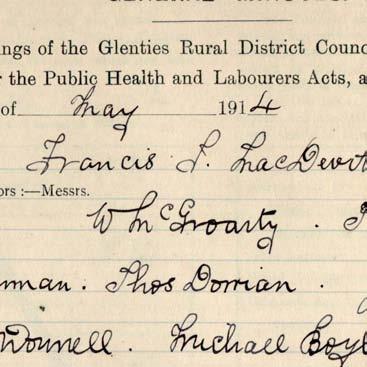 GENERAL MINUTES.
ings of the Glenties Rural District Counc
r the Public Health and Labourers Acts, a
of May 1914
Francis J. MacDevit
ors :—Messrs.
W McGroarty .
nman . Thos Dorrian .
Donnell . Michael Boyl